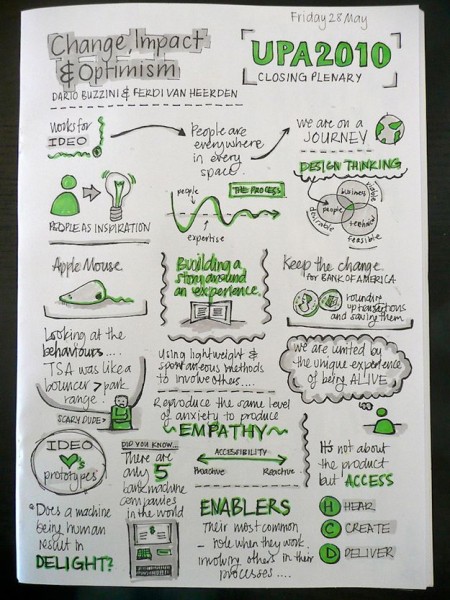 Friday 28 May
Change, Impact
& Optimism
DARIO BUZZINI & FERDI VAN HEERDEN
UPA2010
CLOSING PLENARY
works for
IDEO
People are
everywhere
in every
space
we are on a
JOURNEY
PEOPLE AS INSPIRATION
people
THE PROCESS
expertise
DESIGN THINKING
business
viable
people
desirable
technical
feasible
Apple Mouse
Building a
story around
an experience.
Keep the change
for BANK OF AMERICA
rounding
up transactions
and saving them
Looking at the
behaviours....
TSA was like a
bouncer > park
range!
SCARY DUDE?
Using lightweight &
spontaneous methods
to involve others....
we are united by
the unique experience
of being ALIVE
Reproduce the same level
of anxiety to produce
~EMPATHY~
IDEO
's
prototypes
DID YOU KNOW...
There are
only 5
bank machine
companies
in the world
ACCESSIBILITY
Proactive
Reactive
It's not about
the product
but ACCESS
"Does a machine
being human
result in
DELIGHT?
$
ENABLERS
Their most common
- role when they work
involving others in their
processes....
H HEAR
C CREATE
D DELIVER